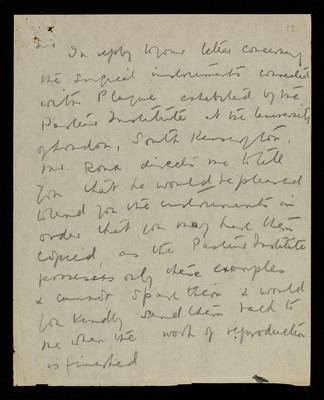 12
Sir In reply to your letter concerning
the surgical instruments connected
with Plague exhibited by the
Pasteur Institute at the University
of London, South Kensington,
Mr. Roux directs me to tell
you that he would be pleased
to lend you the instruments in
order that you may have them
copied, as the Pasteur Institute
possesses only these examples
& cannot spare them & would
you kindly send them back to
me when the work of reproduction
is finished